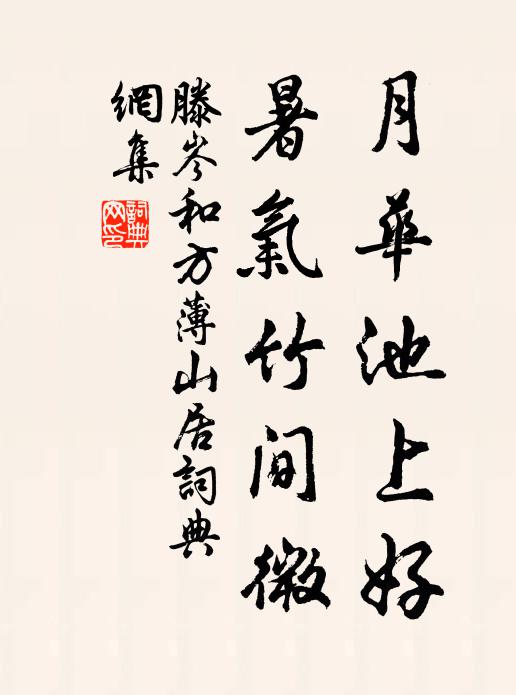 月華池上好
暑氣竹間微
滕岑和方薄山居詞典
網集
詞典網印